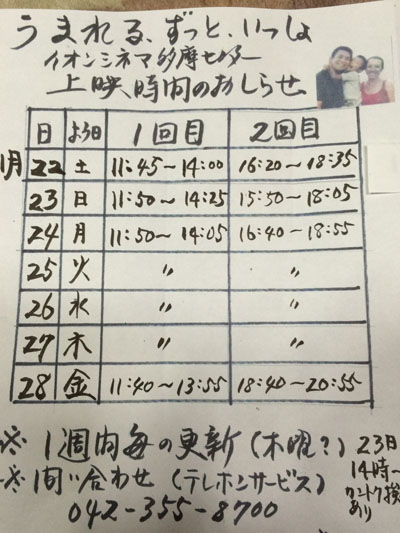 うまれる、ずっと、いっしょ
イオンシネマ多摩センター
上映時間のおしらせ
日 よう日 1回目 2回目
11月 22 土 11:45～14:00 16:20～18:35
23 日 11:50～14:25 15:50～18:05
24 月 11:50～14:05 16:40～18:55
25 火 〃 〃
26 水 〃 〃
27 木 〃 〃
28 金 11:40～13:55 18:40～20:55
※ 1週間毎の更新(木曜?)
※ 問い合わせ(テレホンサービス)
042-355-8700
23日
14時～
カントク挨
あり